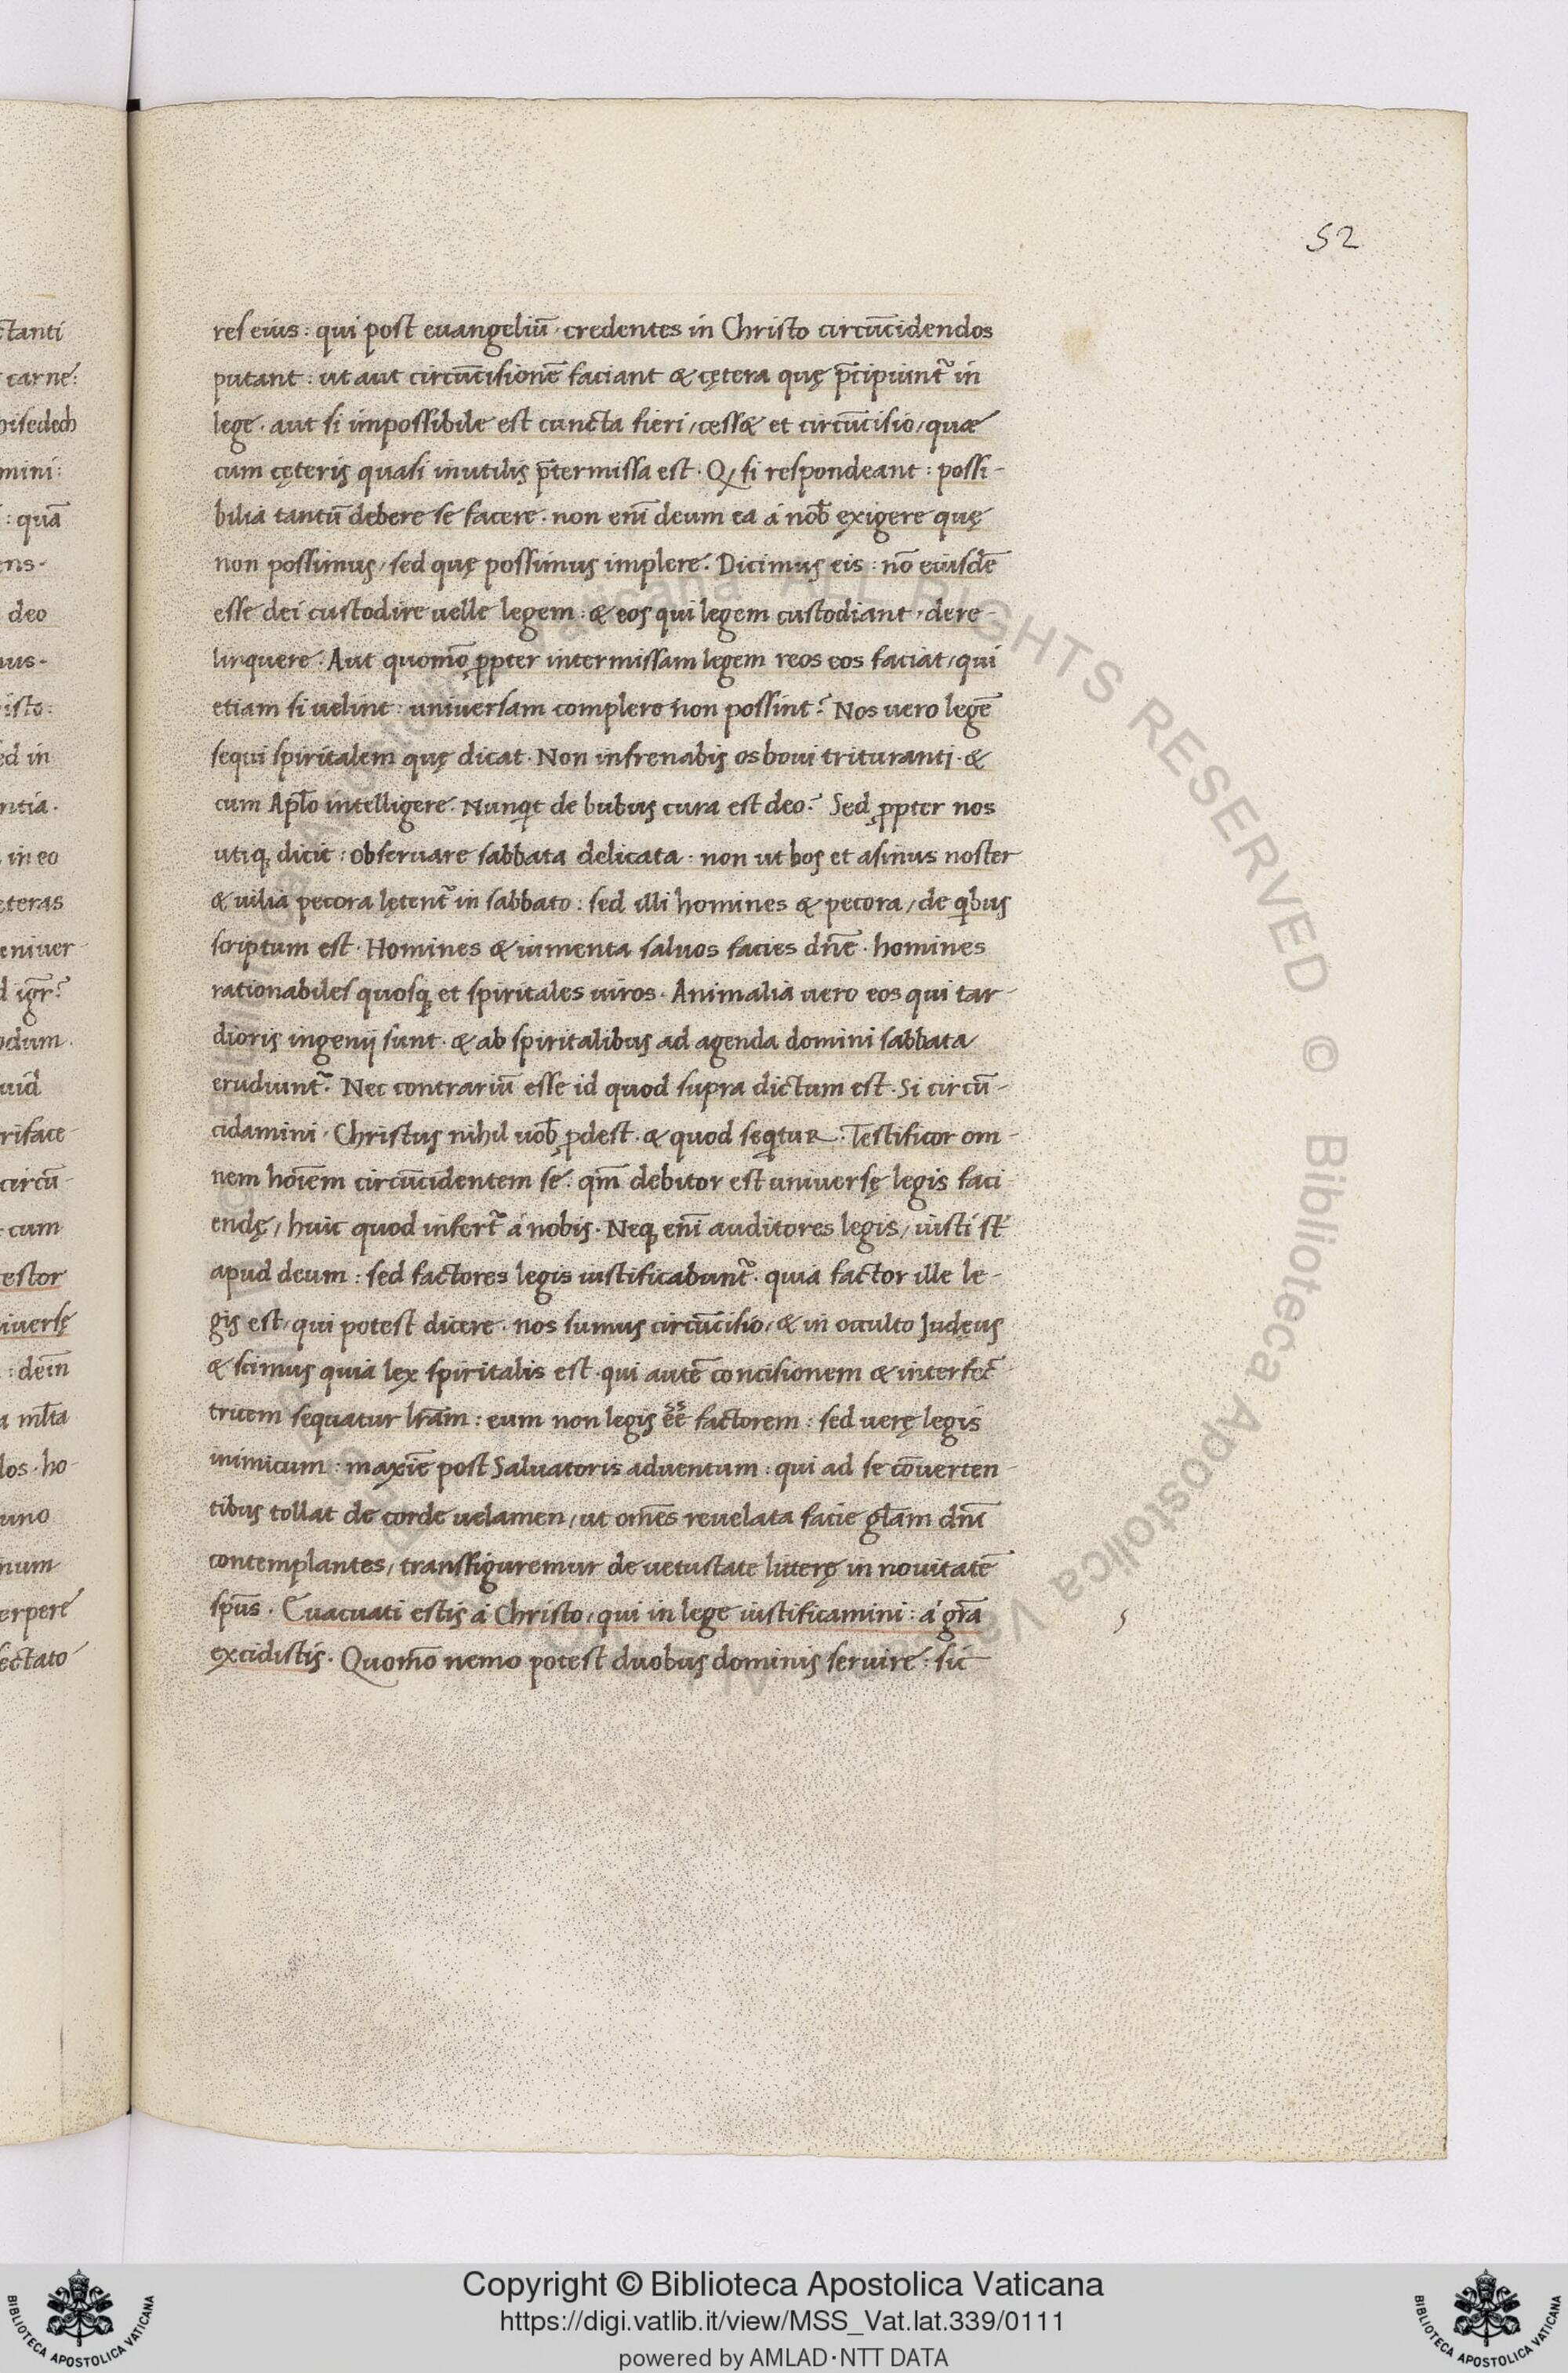 52
res eius : qui post euangeliū · credentes in Christo circūcidendos
putant : ut aut circūcisionē faciant & cętera quę p̄cipiunt᷑ in
lege · aut si impossibile est cuncta fieri / cess& et circūcisio / quæ
cum cęteris quasi inutilis p̄termissa est · Qꝫ si respondeant : possi-
bilia tantū debere se facere · non eni᷑ deum ea á nob̄ exigere quę
non possimus / sed quę possimus implere · Dicimus eis : nō eiusdē
esse dei custodire uelle legem : & eos qui legem custodiant · dere-
linquere · Aut quomō ꝓpter intermissam legem reos eos faciat / qui
etiam si uelint : uniuersam complere non possint? Nos uero legē
sequi spiritalem quę dicat · Non infrenabis os boui trituranti · &
cum Apl̄o intelligere · Nunqt de bubus cura est deo? Sed ꝓpter nos
utiqꝫ dicit : obseruare sabbata delicata · non ut bos et asinus noster
& uilia pecora lętent᷑ in sabbato : sed illi homines & pecora / de qibus
scriptum est · Homines & iumenta saluos facies dn̄e · homines
rationabiles quosqꝫ et spiritales uiros · Animalia uero eos qui tar-
dioris ingenij sunt · & ab spiritalibus ad agenda domini sabbata
erudiunt᷑ · Nec contrariū esse id quod supra dictum est · Si circū-
cidamini · Christus nihil uob̄ ꝓdest · & quod seqitur · Testificor om-
nem hoīem circūcidentem se · qm̄ debitor est uniuersę legis faci-
endę / huic quod infert᷑ á nobis · Neqꝫ eni᷑ auditores legis / iusti st̄
apud deum : sed factores legis iustificabunt᷑ · quia factor ille le-
gis est · qui potest dicere · nos sumus circūcisio / & in occulto Judęus
& scimus quia lex spiritalis est · qui autē concisionem & interfec-
tricem sequatur lr̄am : eum non legis ēē factorem : sed uerę legis
inimicum : maxīe post Saluatoris aduentum : qui ad se cōuerten-
tibus tollat de corde uelamen / ut om̄es reuelata facie gl̄am dn̄i
contemplantes / transfiguremur de uetustate litterę in nouitatē
sp̄us · Euacuati estis á Christo / qui in lege iustificamini : á gr̄a
excidistis · Quomō nemo potest duobus dominis seruire : sic
ctanti
carne:
hisedech
mini:
: quā
ens·
deo
nus·
isto:
ed in
ntia·
in eo
eteras
eniuer-
d igr̄?
odum·
uid
riface-
circū-
cum
estor
iuersę
: dein̄
a ml̄ta
los · ho-
uno
num
erpere
ectato
Copyright © Biblioteca Apostolica Vaticana
https://digi.vatlib.it/view/MSS_Vat.lat.339/0111
powered by AMLAD·NTT DATA
BIBLIOTECA APOSTOLICA VATICANA
BIBLIOTECA APOSTOLICA VATICANA
ALL RIGHTS RESERVED © Biblioteca Apostolica Vaticana